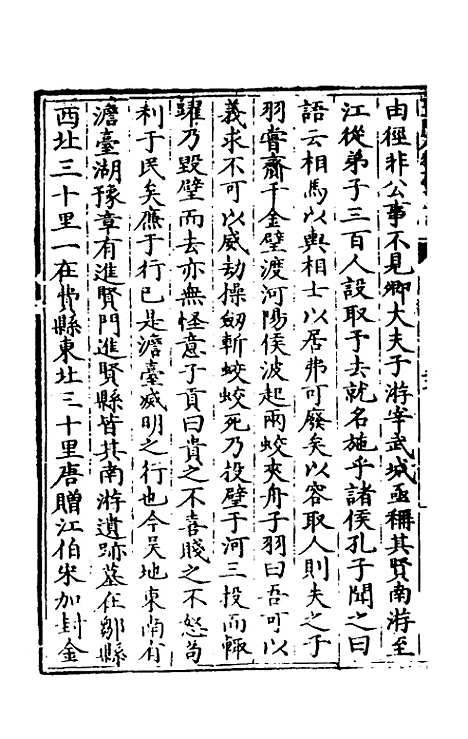 由徑非公事不見卿大夫子游宰武城亟稱其賢南游至
江從弟子三百人設取予去就名施乎諸侯孔子聞之曰
語云相馬以輿相士以居弗可廢矣以容取人則失之子
羽嘗齎千金璧渡河陽侯波起兩蛟夾舟子羽曰吾可以
義求不可以威劫操劔斬蛟蛟死乃投璧于河三投而輒
躍乃毀璧而去亦無怪意子貢曰貴之不喜賤之不怒苟
利于民矣廉于行已是澹臺滅明之行也今吳地東南有
澹臺湖豫章有進賢門進賢縣皆其南游遺跡墓在鄒縣
西北三十里一在費縣東北三十里唐贈江伯宋加封金